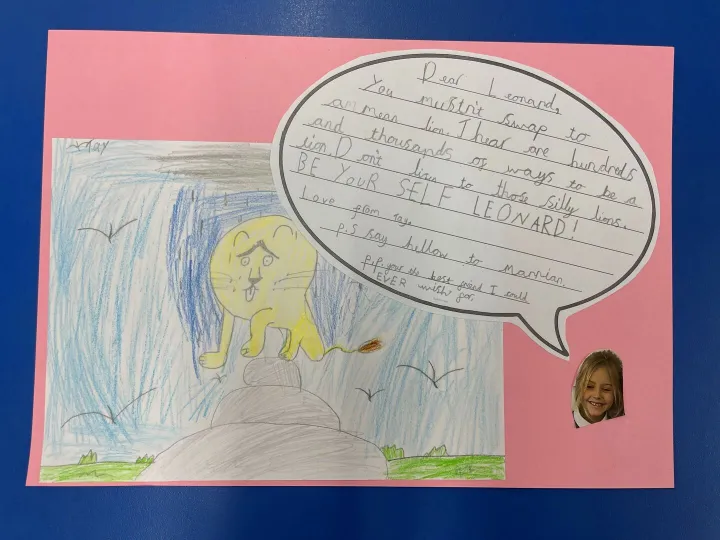 Dear Leonard,
You mustn't swap to
an mean lion. Thear are hundreds
and thousands of ways to be a
lion. Don't lisen to those silly lions.
BE YOUR SELF LEONARD!
Love from
P.S say hellow to Marrian.
P.P. your the best freind I could
EVER wish for.